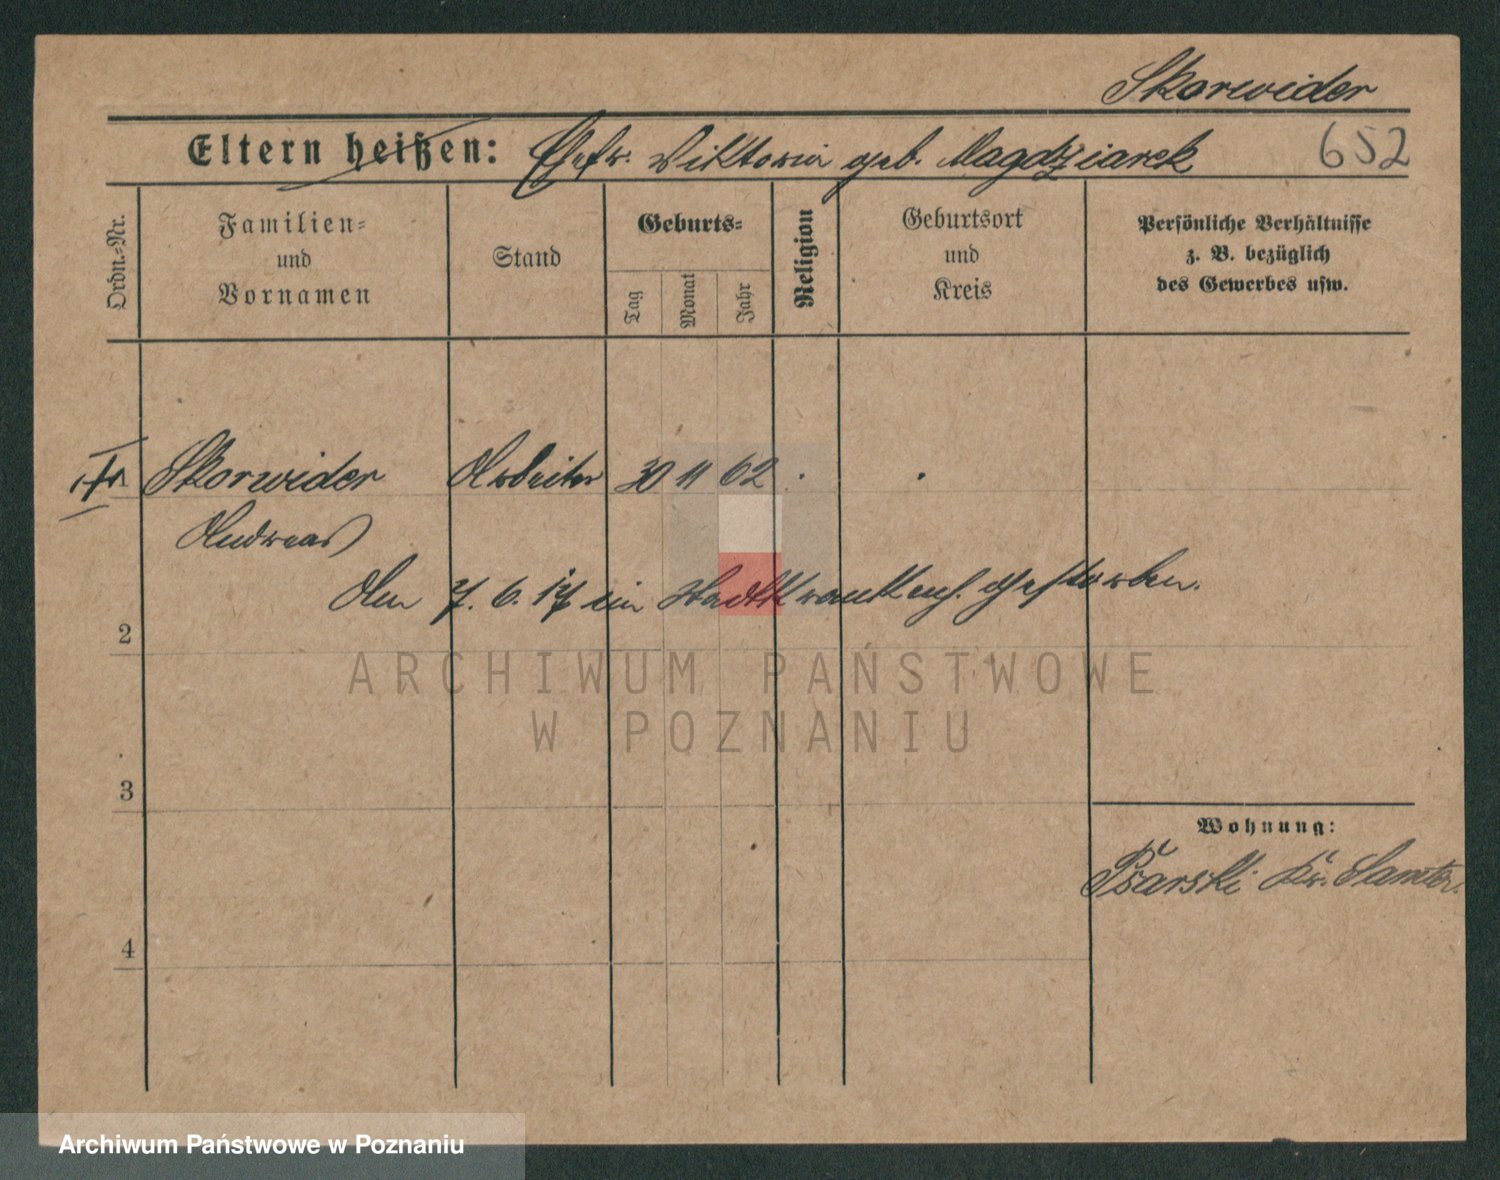 Skorwider
Eltern heißen: Ehefr. Viktoria geb. Magdziarek 652
Ordn.-Nr.
Familien-
und
Vornamen
Stand
Geburts-
Tag
Monat
Jahr
Religion
Geburtsort
und
Kreis
Persönliche Verhältnisse
z. B. bezüglich
des Gewerbes usw.
Skorwider Arbeiter 30 11 62
Andreas
Am 7. 6. 17 im Stadtkrankenh. gestorben.
2
ARCHIWUM PAŃSTWOWE
W POZNANIU
3
Wohnung:
Psarski Kr. Samter.
4
Archiwum Państwowe w Poznaniu